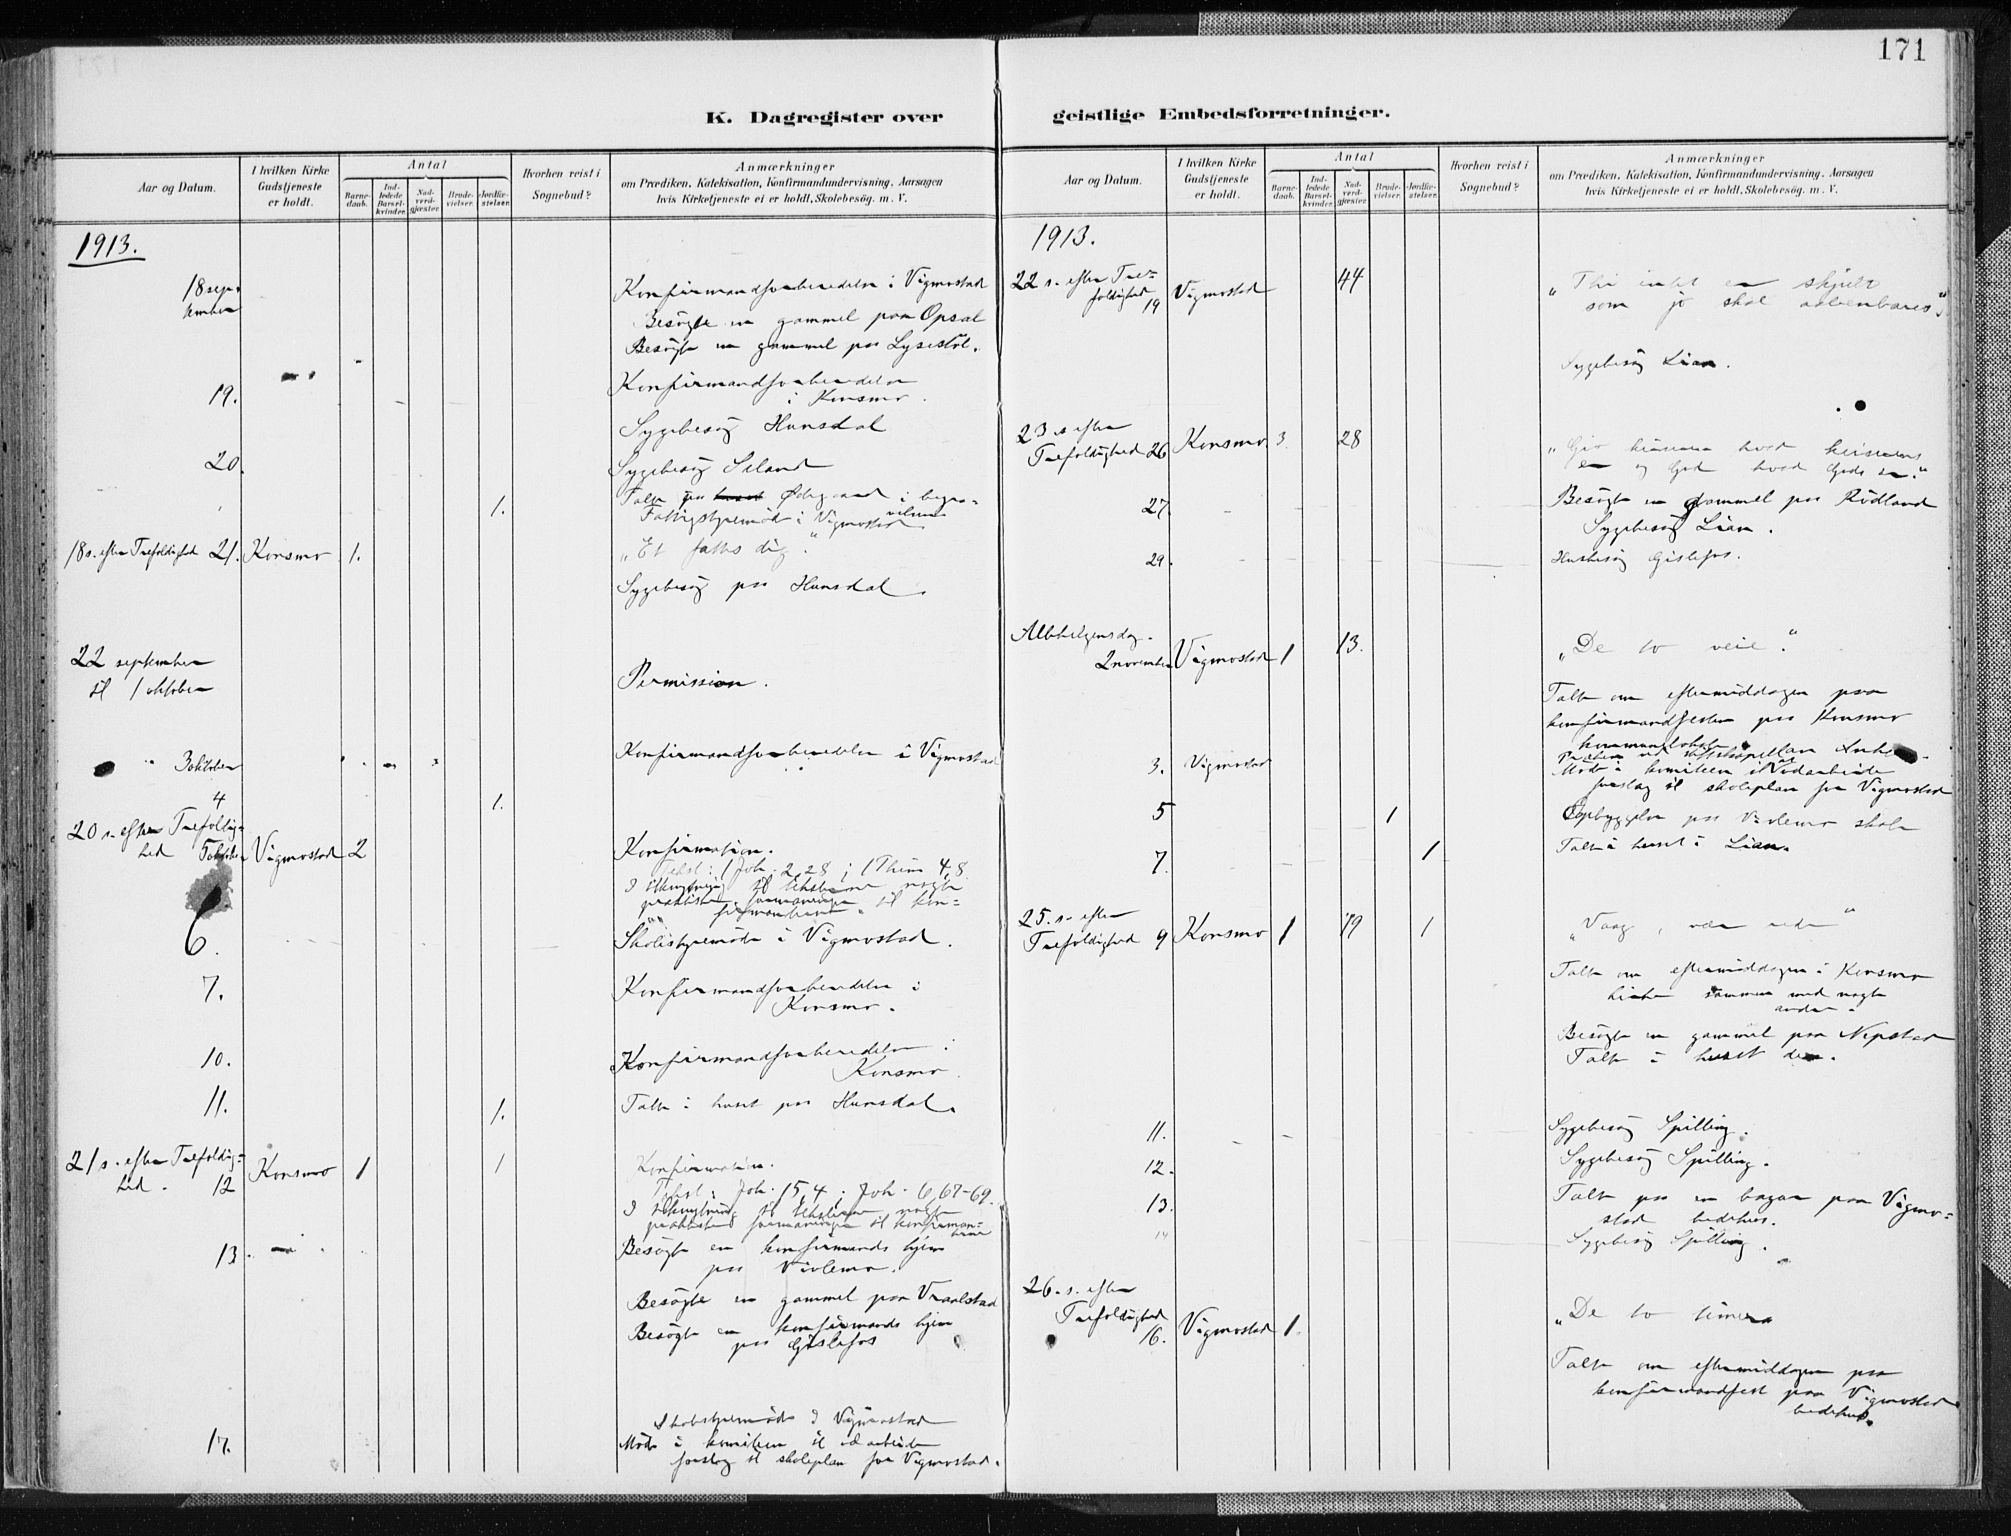 171
K. Dagregister over
geistlige Embedsforretninger.
Aar og Datum.
I hvilken Kirke
Gudstjeneste
er holdt.
Antal
Barne-
daab.
Ind-
ledede
Barsel-
kvinder.
Nad-
verd-
gjæster.
Brude-
vielser.
Jordfæ-
stelser.
Hvorhen reist i
Sognebud?
Anmærkninger
om Prædiken, Katekisation, Konfirmandundervisning, Aarsagen
hvis Kirketjeneste ei er holdt, Skolebesøg. m. V.
1913.
18 sep-
tember
Konfirmandforberedelse i Vigmostad
Besögte en gammel paa Opsal
Besögte en gammel paa Lysestöl.
19.
Konfirmandforberedelse
i Konsmo.
Sygebesög Hunsdal
20.
Sygebesög
1.
Talte paa Ödegaard i begra-
velse
Fattigstyremöde i Vigmostad
18 s. efter Trefoldighed 21. Konsmo 1.
"Et fattes dig."
Sygebesög paa Hunsdal.
22 september
til 1 oktober
Permission.
3 oktober
Konfirmandforberedelse i Vigmostad
4
1.
20 s. efter Trefoldig-
hed 5 oktober Vigmostad 2
Konfirmation.
Tekst: 1 Joh. 2,28; 1 Thim 4,8.
I tilknytning til teksterne nogle
praktiske formaninger til kon-
firmanterne.
6.
Skolestyremöde i Vigmostad.
7.
Konfirmandforberedelse i
Konsmo.
10.
Konfirmandforberedelse i
Konsmo.
11.
1.
Talte i huset paa Hunsdal.
21 s. efter Trefoldig-
hed. 12 Konsmo 1 1
Konfirmation.
Tekst: Joh. 15,4; Joh. 6,67-69.
I tilknytning til teksterne nogle
praktiske formaninger til konfirman-
terne
13.
Besögte en konfirmands hjem
paa Viblemo.
Besögte en gammel paa Vraalstad
Besögte en konfirmands hjem
paa Gislefos
17.
Skolestyremöde i Vigmostad
Möde i komiteen til at udarbeide
forslag til skoleplan for Vigmostad.
Aar og Datum.
I hvilken Kirke
Gudstjeneste
er holdt.
Antal
Barne-
daab.
Ind-
ledede
Barsel-
kvinder.
Nad-
verd-
gjæster.
Brude-
vielser.
Jordfæ-
stelser.
Hvorhen reist i
Sognebud?
Anmærkninger
om Prædiken, Katekisation, Konfirmandundervisning, Aarsagen
hvis Kirketjeneste ei er holdt, Skolebesøg. m. V.
1913.
22 s. efter Tre-
foldighed
19 Vigmostad 44
"Thi intet er skjult
som jo skal aabenbares".
Sygebesög Lian.
23 s efter
Trefoldighed 26 Konsmo. 3. 28
"Giv keiseren hvad keiserens
er og Gud hvad Guds er."
27.
Besögte en gammel paa Rödland
Sygebesög Lian.
29.
Husbesög Gislefos.
Allehelgensdag.
2 november Vigmostad 1 13.
"De to veie".
Talte om eftermiddagen paa
konfirmandfesten paa Konsmo
3. Vigmostad
Möde i komiteen til at udarbeide
forslag til skoleplan for Vigmostad
5
1
Opbyggelse paa Viblemo skole
7.
1
Talte i huset i Lian.
25. s. efter
Trefoldighed 9 Konsmo 1 19 1
"Vaag, vær rede"
Talte om eftermiddagen i Konsmo
kirke sammen med nogle
andre.
Besögte en gammel paa Nepstad
Talte i huset der.
11.
Sygebesög Spilling.
12.
Sygebesög Spilling.
13.
Talte paa en bazar paa Vigmo-
stad bedehus.
14
Sygebesög Spilling.
26. s. efter
Trefoldighed
16. Vigmostad 1.
"De to
Talte om eftermiddagen paa
konfirmandfest paa Vigmostad
bedehus.